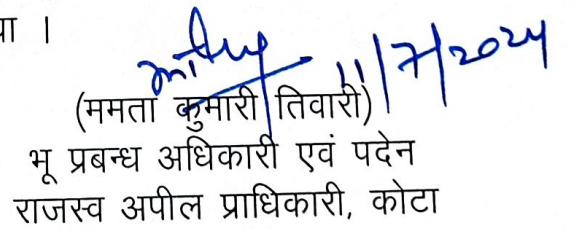 ा ।
11/7/2024
(ममता कुमारी तिवारी)
भू प्रबन्ध अधिकारी एवं पदेन
राजस्व अपील प्राधिकारी, कोटा